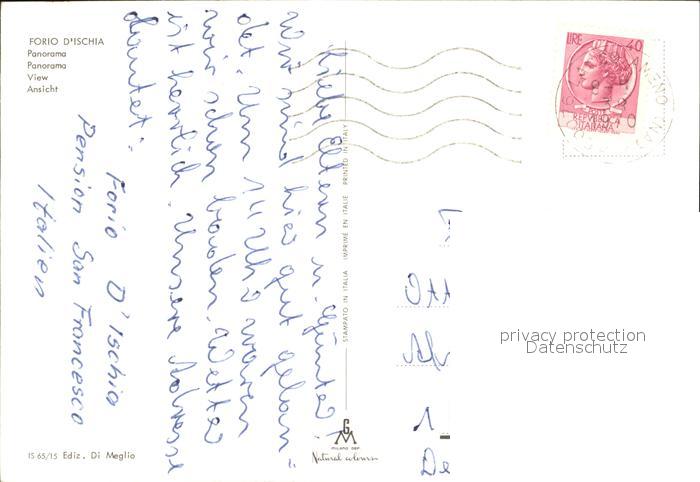 FORIO D'ISCHIA
Panorama
Panorama
View
Ansicht
Liebe Eltern u. Günter!
Wir sind hier gut gelan=
det. Um 14 Uhr waren
wir schon baden. Wetter
ist herrlich. Unsere Adresse
lautet:
Forio D'Ischia
Pension San Francesco
Italien
IS 65/15 Ediz. Di Meglio
STAMPATO IN ITALIA IMPRIMÉ EN ITALIE PRINTED IN ITALY
MILANO DEP.
Natural colours
LIRE 40
REPVBBLICA
ITALIANA
Ott
1
De
privacy protection
Datenschutz